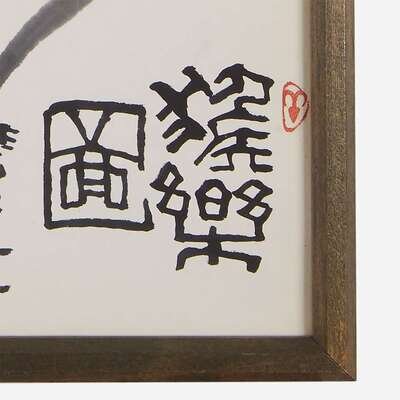 猴樂
圖